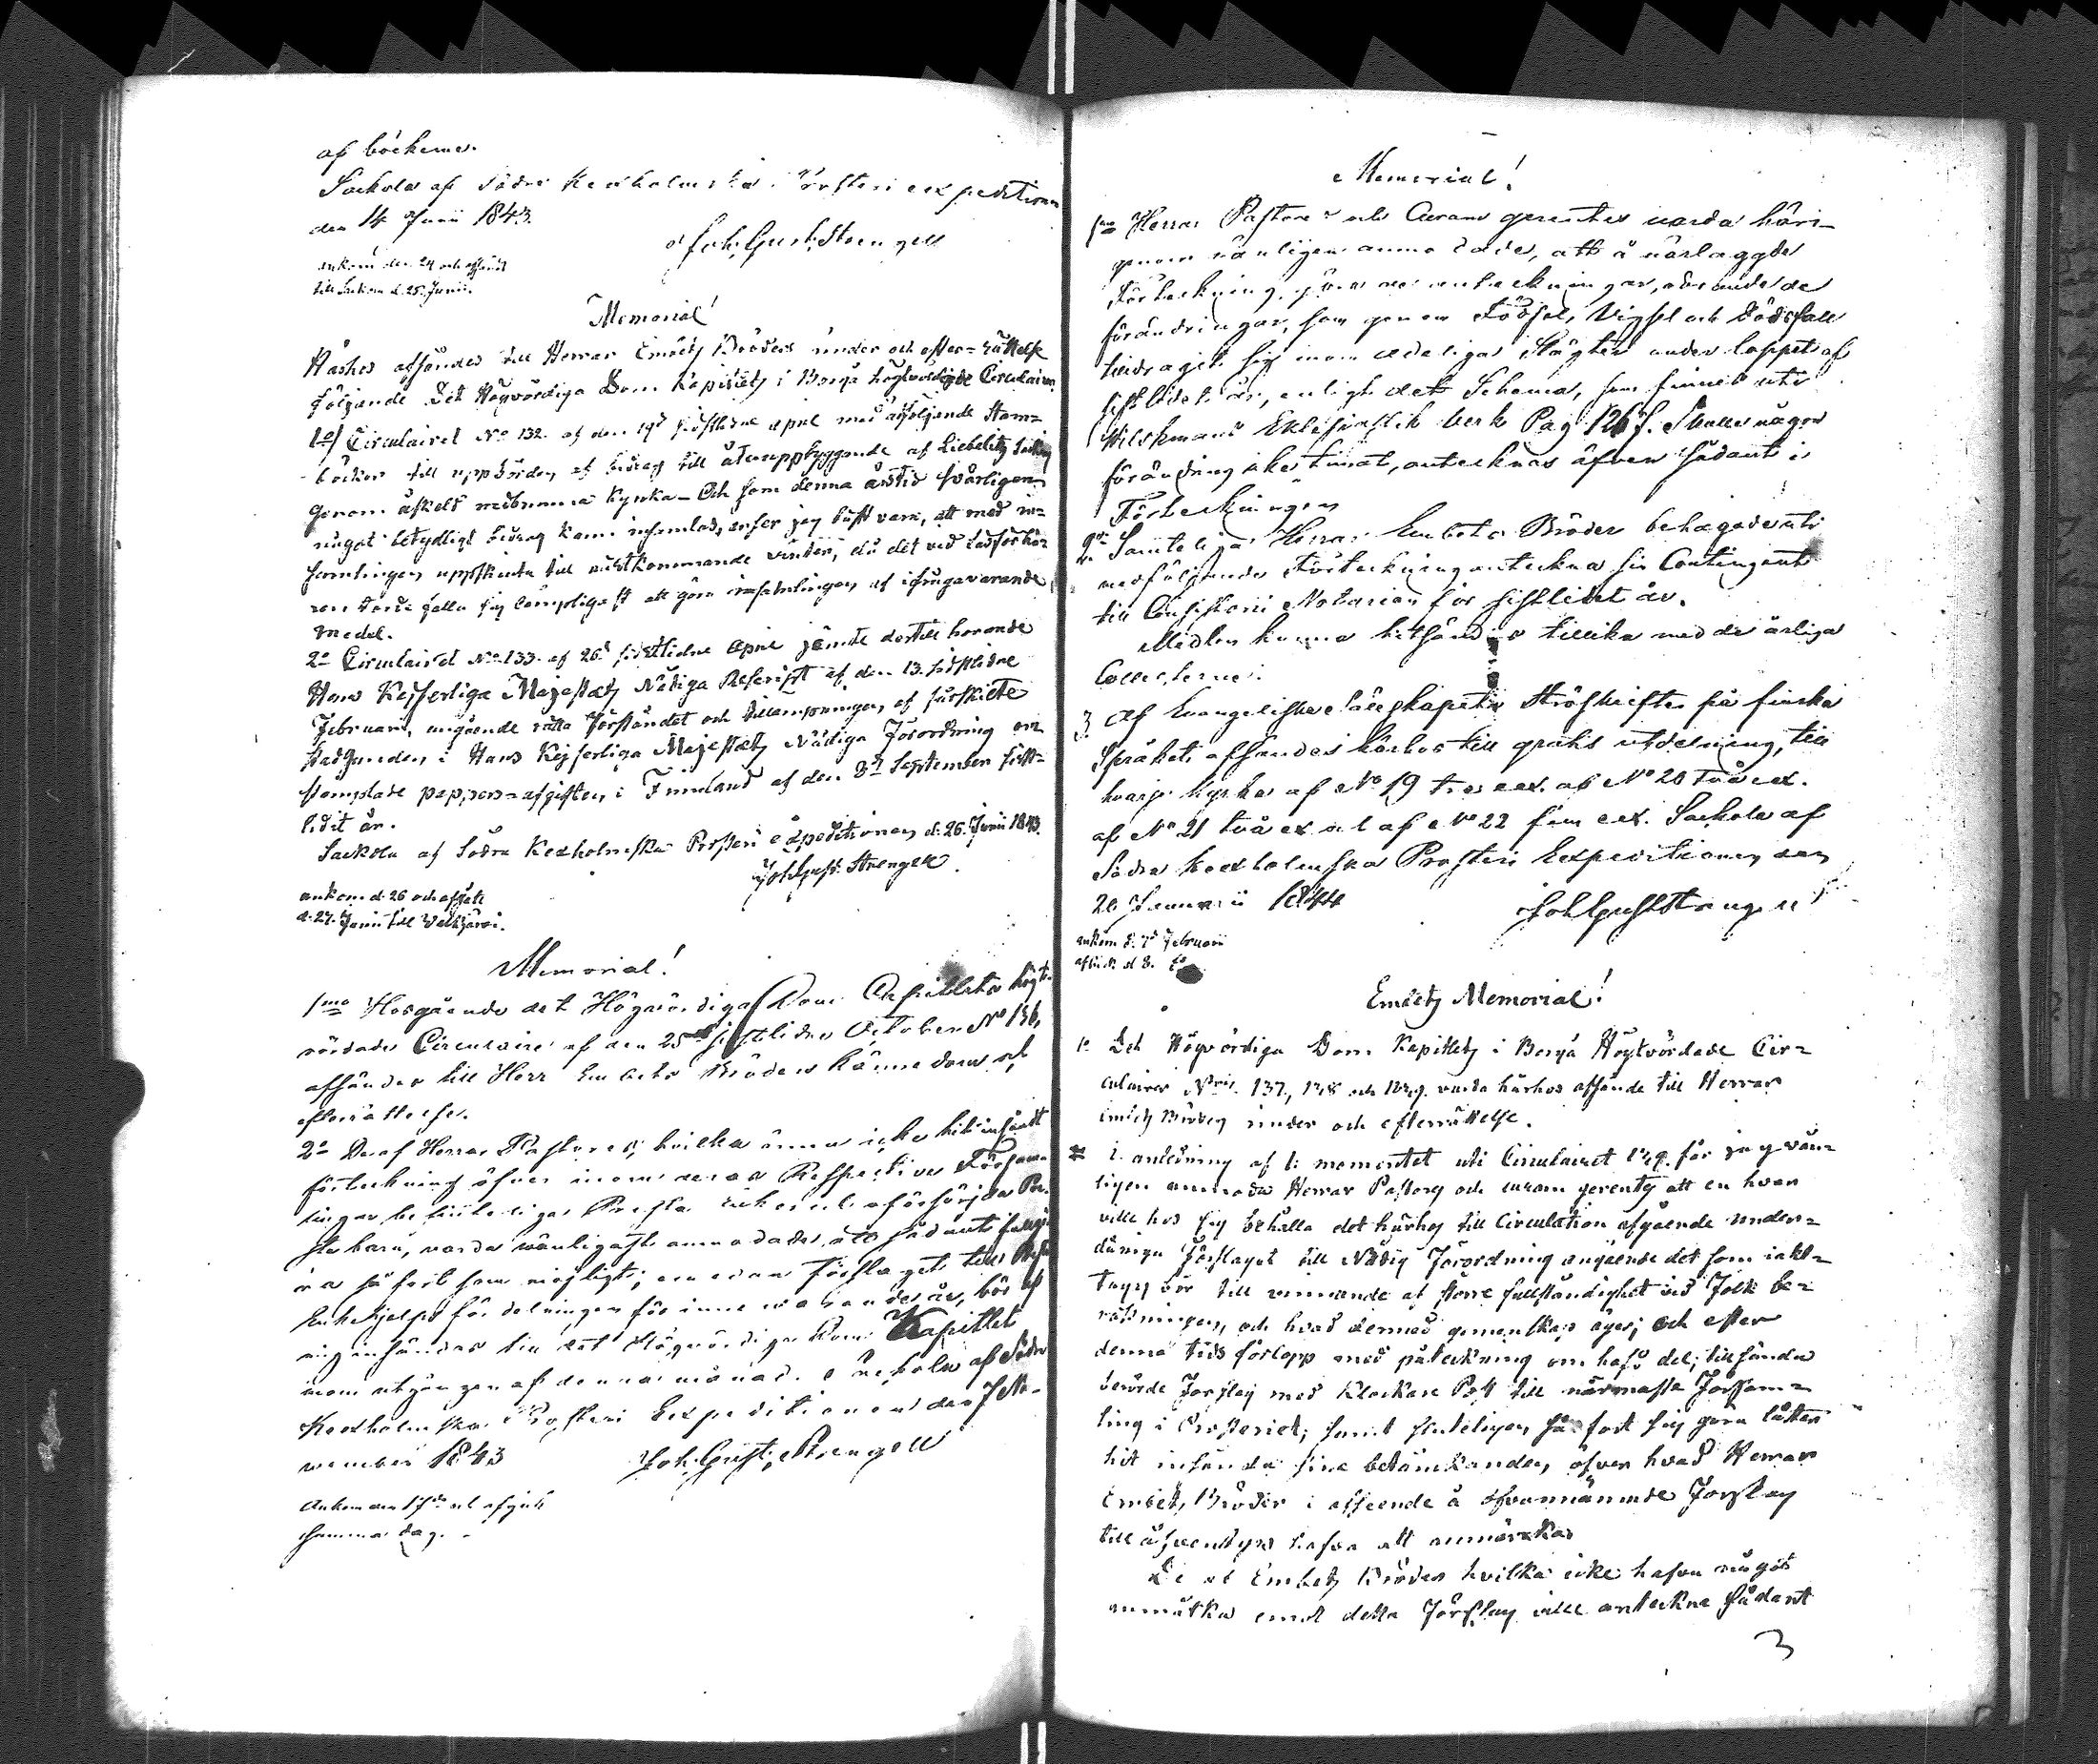 af böckerne.
Sackola af Södra Kexholmska Prosteri expeditionen
den 14 Junii 1843.
Joh. Gust. Strengell
ankom den 24 och afsändt
till Sackola d. 25. Junii.
Memorial!
Härhos afsändes till Herrar Embets Bröders under och efter-rättelse
följande Det Högvördiga Dom Kapitlets i Borgå högtvördade Circulairer
1o/ Circulairet No 132. af den 19d sistledne April med åtföljande Stam-
böcker till uppbörden af bidrag till återuppbyggande af Liebelitz Sockns
genom åskeld nedbrunna Kyrka - Och som denna årstid svårligen
något betydligt bidrag kann insamlas, anser jag bäst vara, att med in-
samlingen uppskjuta till nästkommande vinter, då det vid Läsförhö-
ren torde falla sig lämpligast att göra insamlingen af ifrågavarande
medel.
2o Circulairet No 133. af 26d sistledne April jämte dertill hörande
Hans Kejserliga Majestæts Nådiga Rescript af den 13. sistledne
Februarii, angående rätta förståndet och tillämpningen af särskilte
stadganden i Hans Kejserliga Majestæts Nådiga Förordning om
stämplade pappers-afgiften i Finnland af den 3d September sist-
ledit år.
Sackola af Södra Kexholmska Prosteri expeditionen d. 26. Junii 1843.
Joh Gust. Strengell
ankom d. 26 och afgick
d. 27. Junii till Valkjärvi.
Memorial!
1mo Hosgående det Högvördiga Dom Capitlets högt-
vördade Circulaire af den 25 sistlidne October No 136,
afsändes till Herr Embets Bröders kännedom och
efterrättelse.
2o De af Herrar Pastores, hvilka ännu icke hit insändt
förteckning öfver inom deras Respective Församl-
lingar befinteliga Prest enkor och oförsörjda Pre-
ste barn, varda vänligast anmodade att sådant fullgö-
ra så fort som möjligt; emedan Förslaget till Preste
Enkehjelps fördelningen för innevarande år, bör af
mig insändas till det Högvördiga Dom Kapitlet
inom utgången af denna månad. Sackola af Södra
Kexholmska Prosteri Expeditionen den 7 No-
vember 1843 Joh. Gust. Strengell
Ankom den 17de och afgick
samma dag.
Memorial!
1mo Herrar Pastores och Curam gerentes varda häri-
genom vänligen anmodade, att å närlaggde
Förteckning göra anteckningar, rörande de
förändringar, som genom Födsel, Vigsel och Dödsfall
tilldragit sig inom adeliga Slägter under loppet af
sistlidet år, enligt det Schema, som finnes uti
Wilskmans Eklesiastik verk Pag 1267. Skulle någon
förändring icke timat, antecknas äfven sådant i
Förteckningen
2o Samtelige Herrar Embets Bröder behagade uti
medföljande Förteckning anteckna sin Contingent
till Consistorii Notarien för sistlidet år.
Medlen kunna hitsändas tillika med de årliga
Collecterne.
3 Af Evangeliska Sällskapets Ströskrifter på finska
Språket afsändes härhos till gratis utdelning, till
hvarje kyrka af No 19 tre ex. af No 20 två ex.
af No 21 två ex och af No 22 fem ex. Sackola af
Södra Kexholmska Prosteri Expeditionen den
20 Januarii 1844 Joh Gust Strengell
ankom d. 7d Februarii
afgick d 8. do
Embets Memorial!
1o Det Högvördiga Dom Kapitlets i Borgå Högtvördade Cir-
culairer Nris 137, 138 och 139. varda härhos afsände till Herrar
Embets Bröders under och efterrättelse.
I anledning af 1: momentet uti Circulairet 139. får jag vän-
ligen anmoda Herrar Pastores och curam gerentes att en hvar
ville hos sig behålla det härhos till Circulation afgående under-
dåniga Förslaget till Nådig Förordning angående det som iakt-
tagas bör till vinnande af större fullständighet vid Folk be-
räkningen, och hvad dermed gemenskap äger; och efter
denna tids förlopp med påteckning om hafd del, tillsända
berörde Förslag med Klockare Post till närmaste Försam-
ling i Prosteriet; samt sluteligen så fort sig göra låter
hit insända sine betänkanden, öfver hvad Herrar
Embets Bröder i afseende å ofvannämnde Förslag
till äfventyrs hafva att anmärka
De af Embets Bröder hvilka icke hafva något
anmärka emot detta Förslag ville anteckna sådant
3